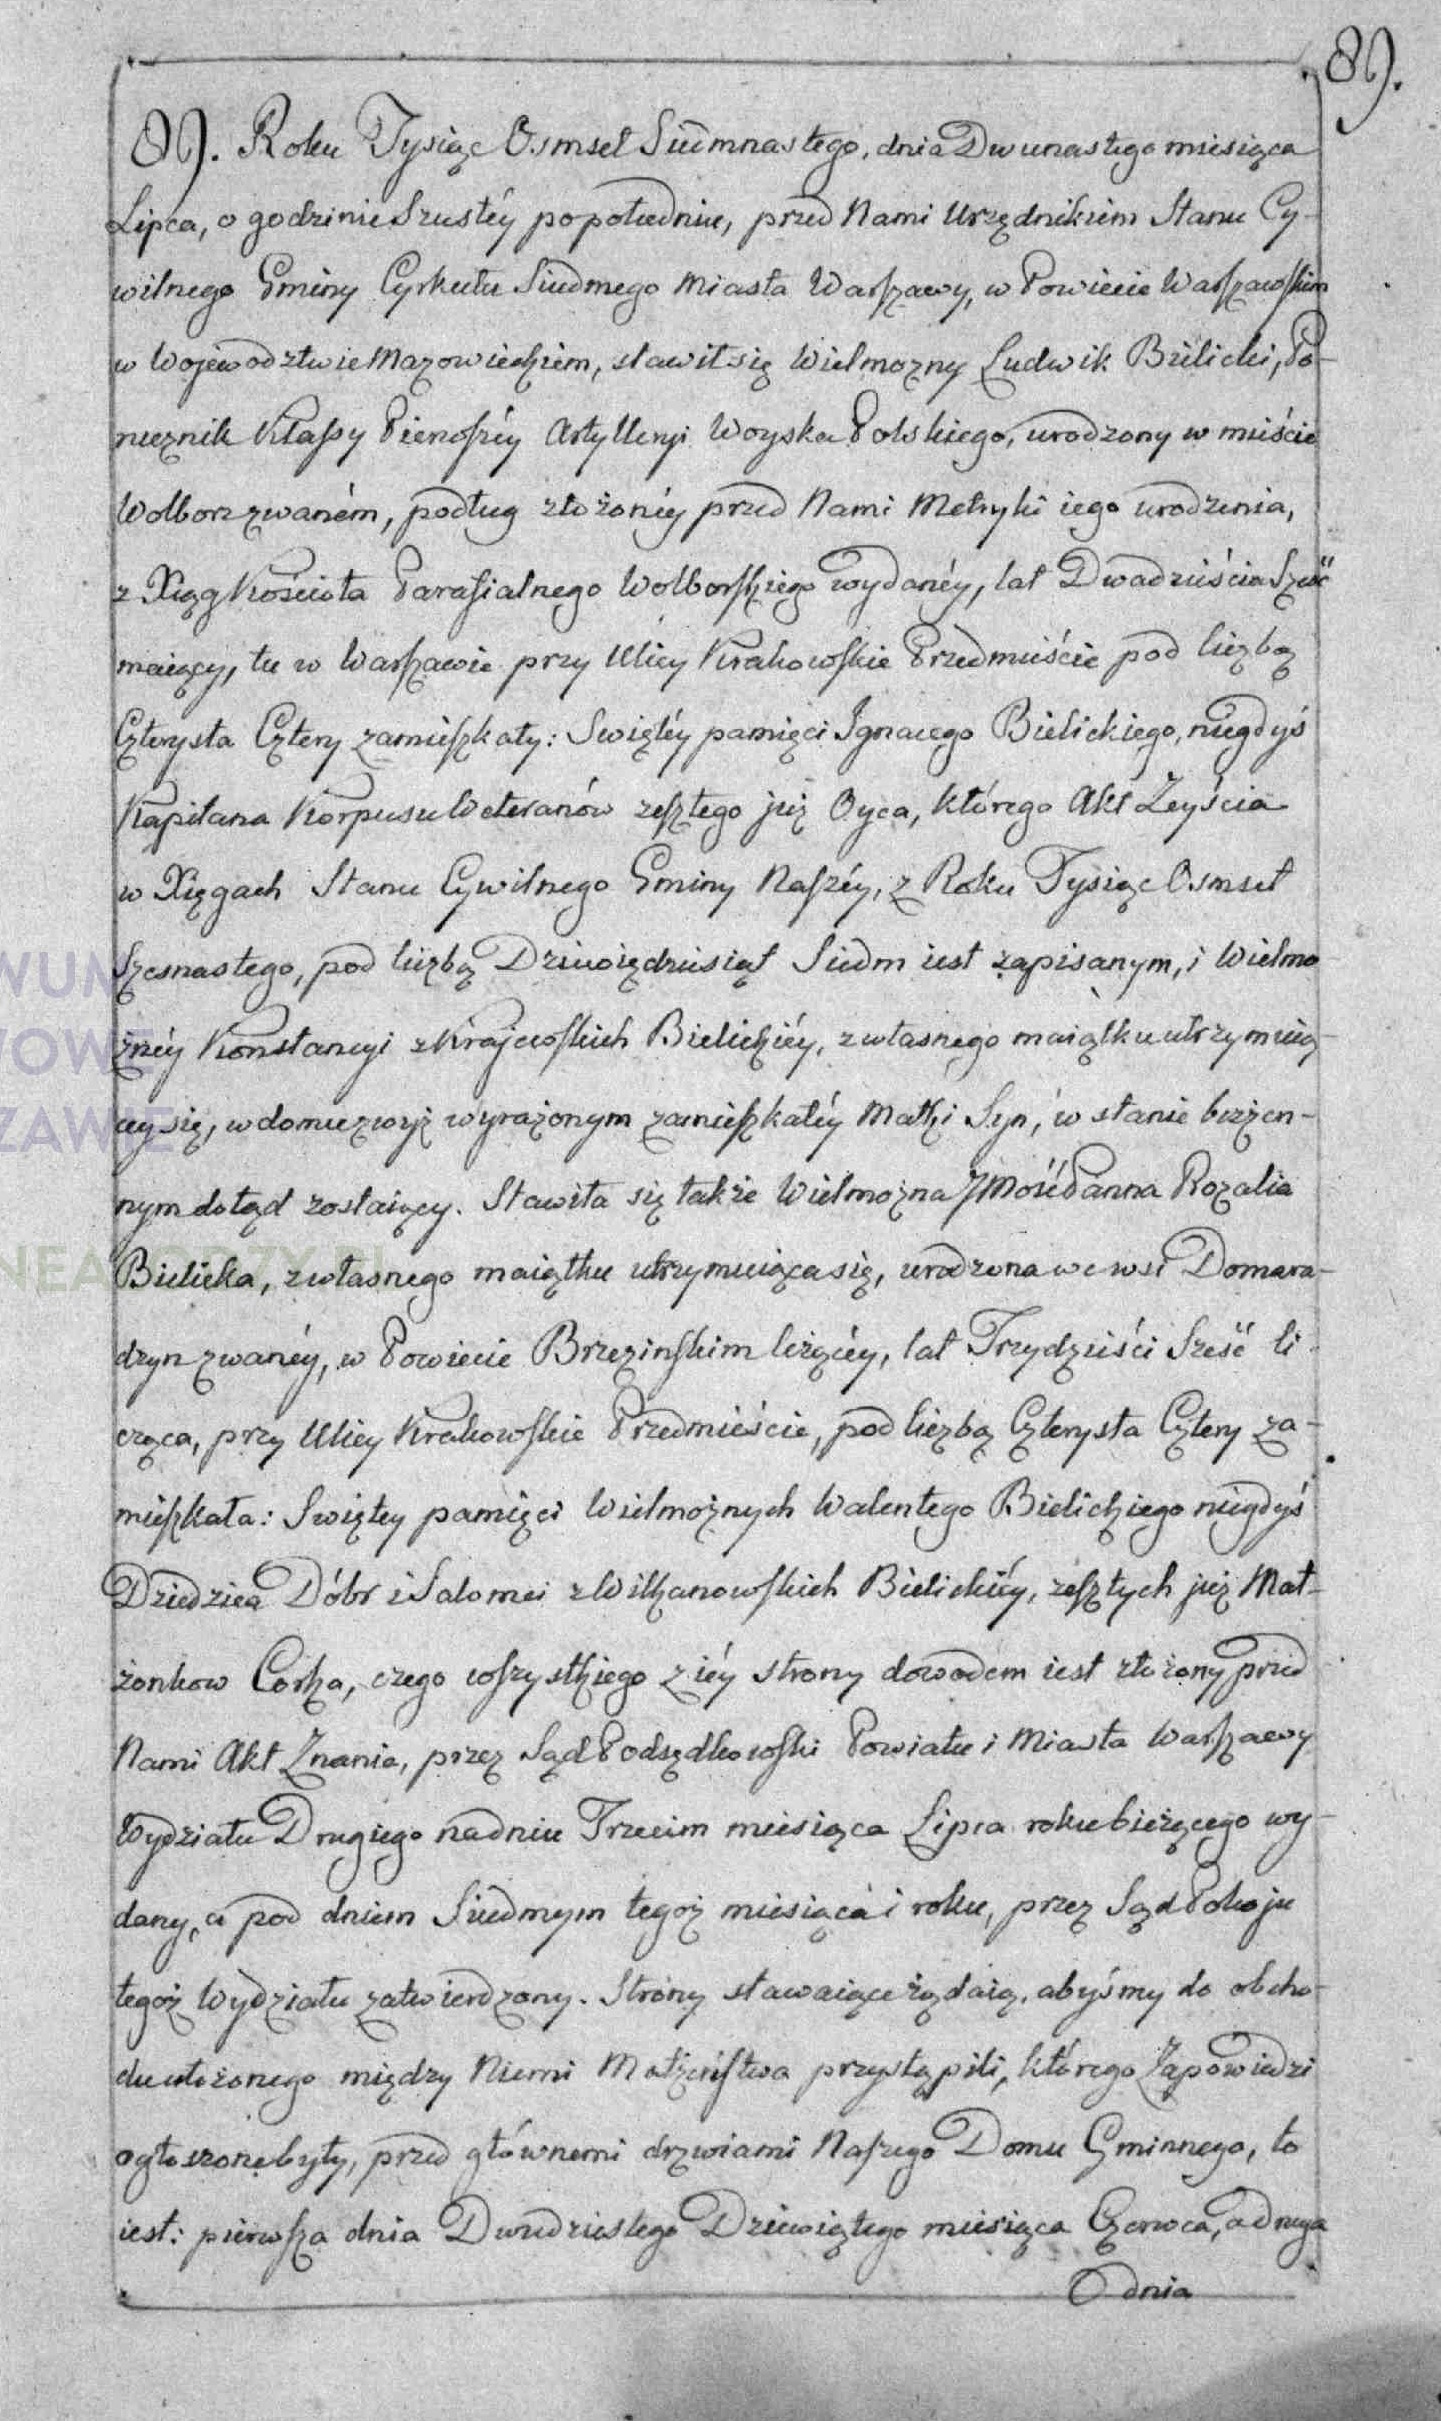 89.
89. Roku Tysiąc Osmset Siedmnastego, dnia Dwunastego miesiąca
Lipca, o godzinie Szustéy popołudniu, przed Nami Urzędnikiem Stanu Cy-
wilnego Gminy Cyrkułu Siudmego Miasta Warszawy, w Powiecie Warszawskim
w Wojewodztwie Mazowieckiem, stawił się Wielmozny Ludwik Bielicki, Po-
rucznik Klassy Pierwszéy Artylleryi Woyska Polskiego, urodzony w mieście
Wolborz zwaném, podług złożonéy przed Nami Metryki iego urodzenia,
z Xiąg Kościoła Parafialnego Wolborskiego wydanéy, lat Dwadzieścia Sześć
maiący, tu w Warszawie przy Ulicy Krakowskie Przedmieście pod liczbą
Czterysta Cztery zamieszkały: Swiętéy pamięci Ignacego Bielickiego, niegdyś
Kapitana Korpusu Weteranów zeszłego już Oyca, którego Akt Zeyścia
w Xięgach Stanu Cywilnego Gminy Naszéy, z Roku Tysiąc Osmset
Szesnastego, pod liczbą Dziewięćdziesiąt Siedm iest zapisanym, i Wielmo-
żnéy Konstancyi z Krajewskich Bielickiéy, z własnego maiątku utrzymuią-
cey się, w domu zwyż wyrażonym zamieszkałéy Matki Syn, w stanie bezżen-
nym dotąd zostaiący. Stawiła się także Wielmożna JMość Panna Rozalia
Bielicka, z własnego maiątku utrzymuiąca się, urodzona we wsi Domara-
dzyn zwanéy, w Powiecie Brzezinskim leżącéy, lat Trzydzieści Sześć li-
cząca, przy Ulicy Krakowskie Przedmieście, pod liczbą Czterysta Cztery za-
mieszkała: Swiętey pamięci Wielmożnych Walentego Bielickiego niegdyś
Dziedzica Dóbr i Salomei z Wilkanowskich Bielickiéy, zeszłych już Mał-
żonkow Corka, czego wszystkiego z iéy strony dowodem iest złożony przed
Nami Akt Znania, przez Sąd Podsędkowski Powiatu i Miasta Warszawy
Wydziału Drugiego na dniu Trzecim miesiąca Lipca roku bieżącego wy-
dany, a pod dniem Siudmym tegoż miesiąca i roku, przez Sąd Pokoju
tegoż Wydziału zatwierdzony. Strony stawaiące żądaią, abyśmy do obcho-
du ułożonego między Niemi Małżeństwa przystąpili, którego Zapowiedzi
ogłoszone były, przed głównemi drzwiami Naszego Domu Gminnego, to
iest: pierwsza dnia Dwudziestego Dziewiątego miesiąca Czerwca, a druga
dnia